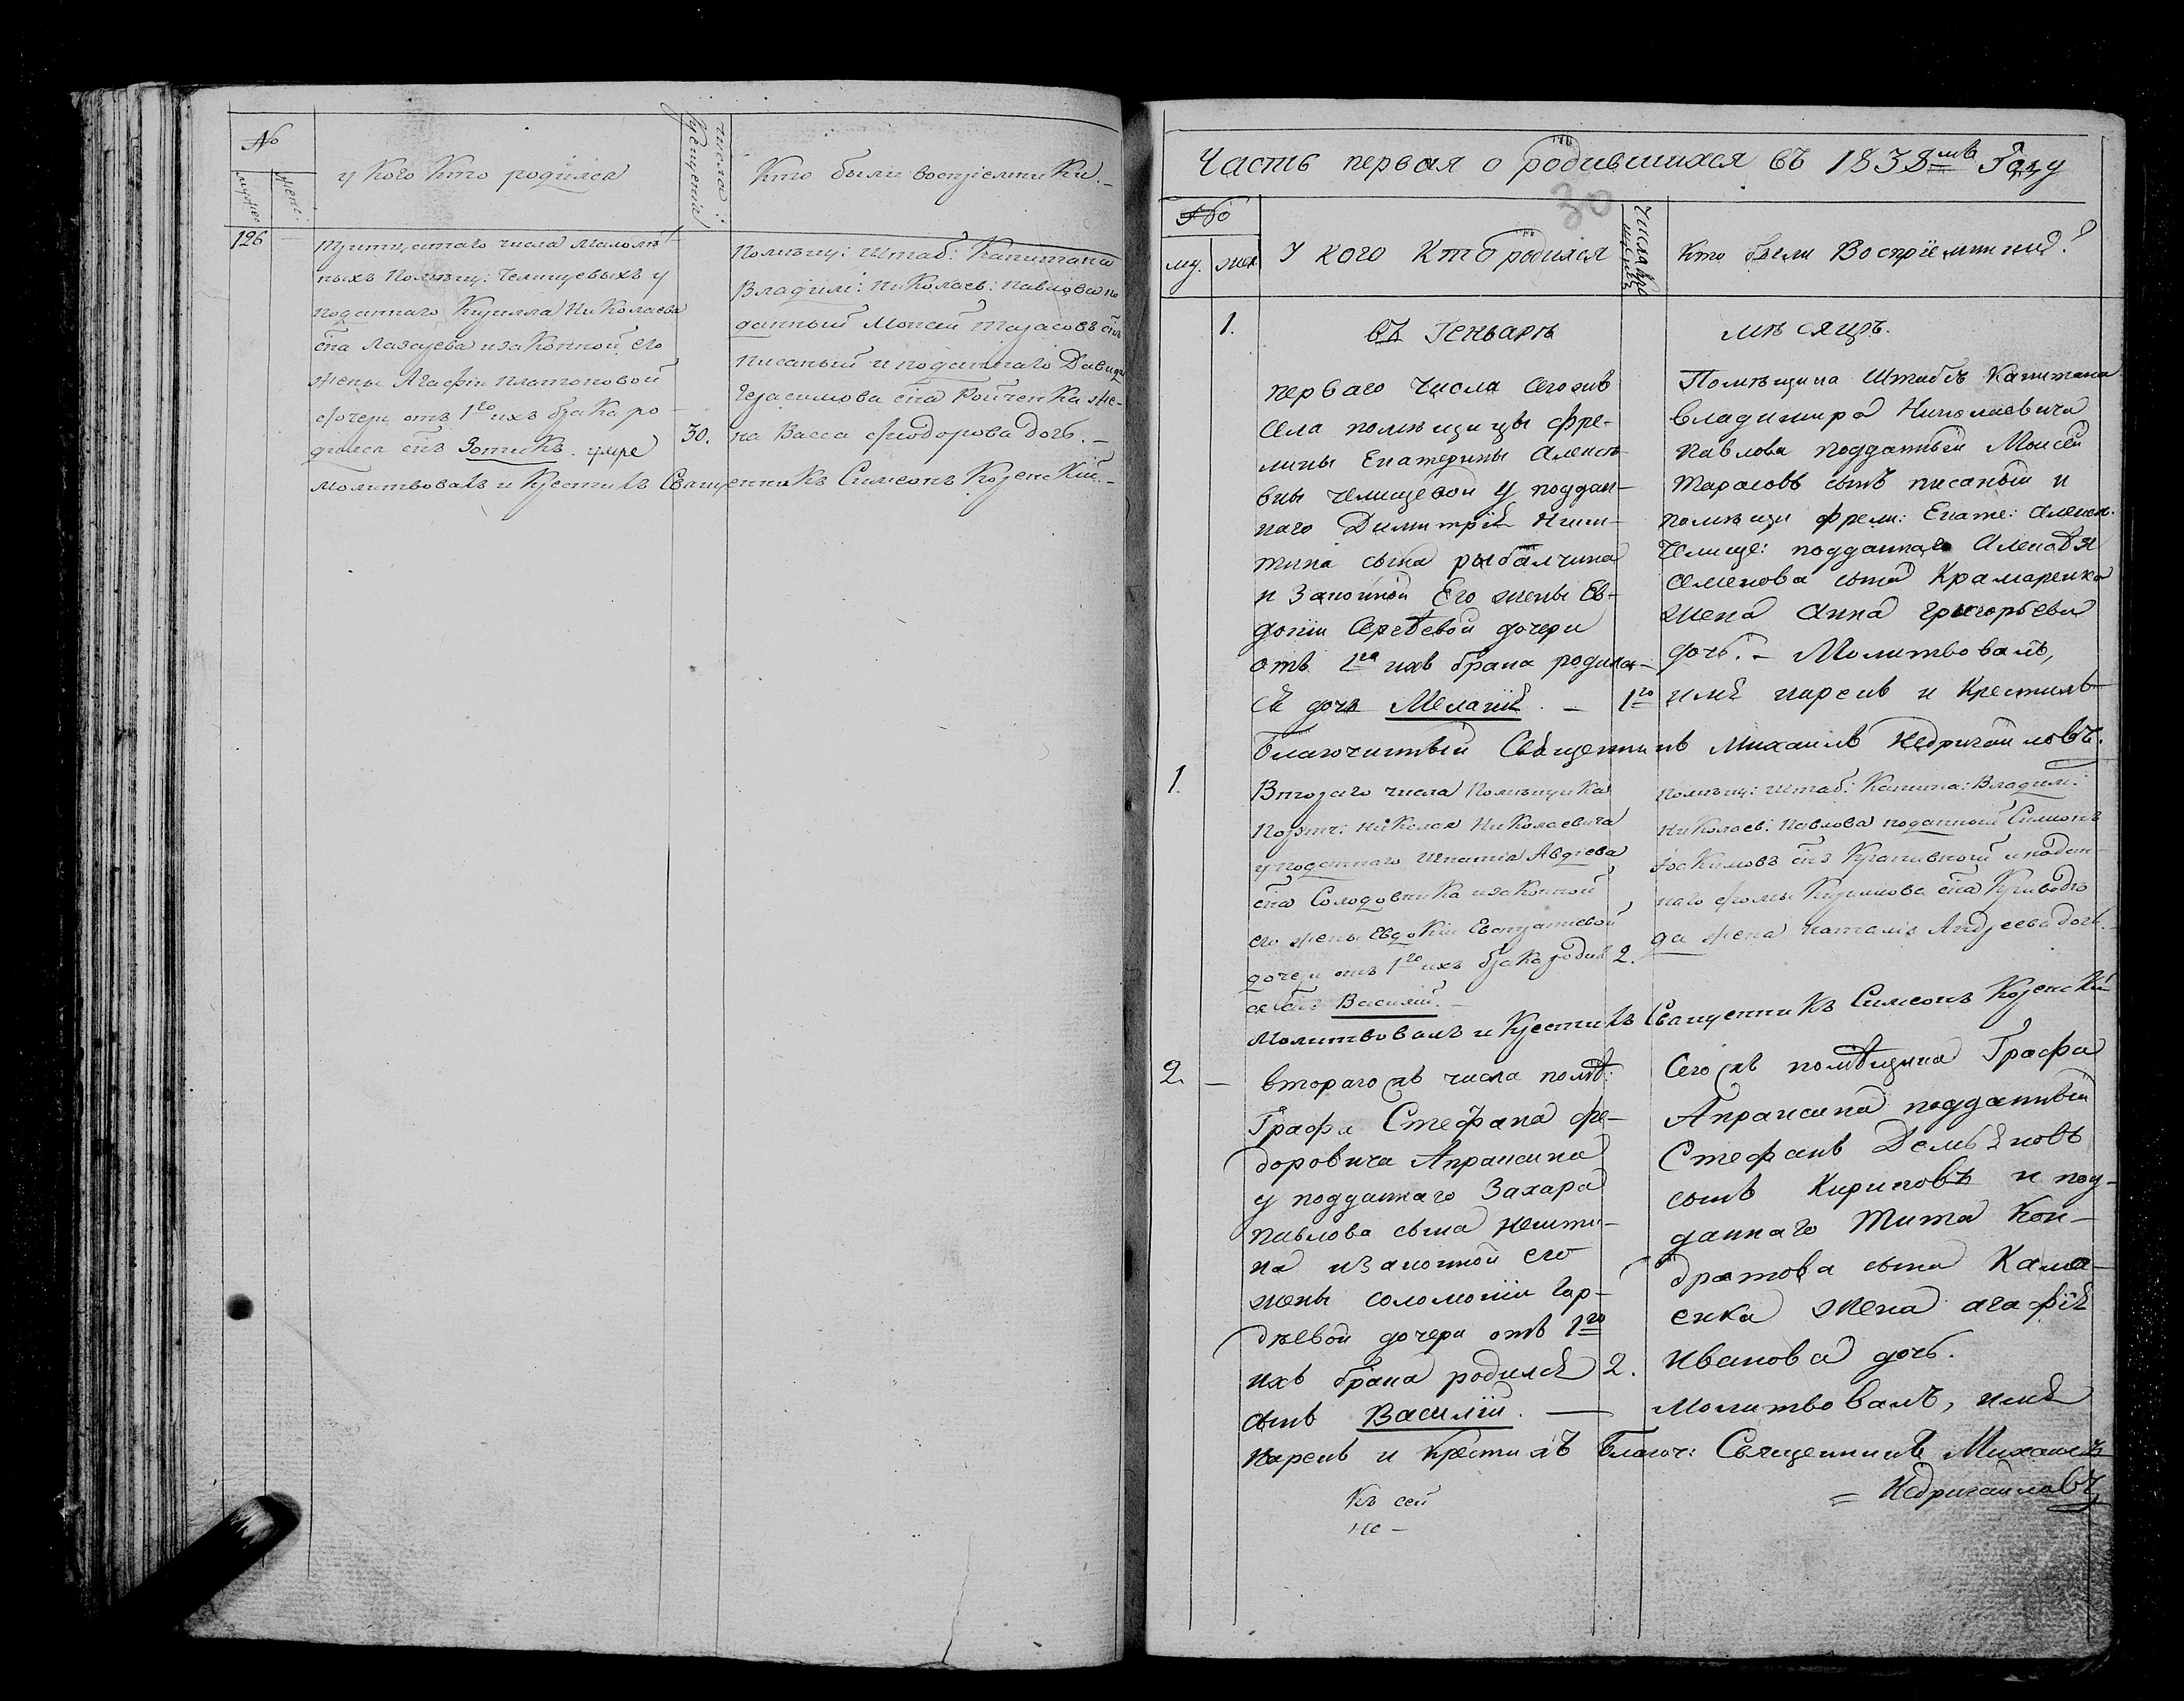 №
у кого кто родился
числа крещенія
кто были воспріемники.
мужес:
женс:
126
тритцатаго числа малолѣт
ныхъ Помѣщ: Челищевыхъ у
поданнаго Кирилла Николаева
сна Лазарева и законной его
жены Агафіи Платоновой
дочери отъ 1го ихъ брака ро-
дился снъ Зотикъ. умре
30.
Помѣщ: Штаб: Капитана
Владим: Николаев: Павлова по
данный Моисей Тарасовъ снъ
Писаный и поданнаго Давида
Герасимова сна Койченка же-
на Васса Фиодорова дочь. —
молитвовалъ и крестилъ Священникъ Симеонъ Коренскій. —
Часть первая о родившихся въ 1838мъ Году
30
№
му. жен
У кого кто родился
Числа кре
Кто были Воспріемники?
1.
въ Геньварѣ
мѣсяцѣ.
перваго числа сегожъ
села помѣщицы фре-
лины Екатерины Алексѣ-
вны Челищевой у поддан-
наго Димитрія Ники-
тина сына рыбалчина
и Законной Его жены Ев-
докіи Сергѣевой дочери
отъ 1го ихъ брака родила-
ся дочь Меланія. —
1го
Помѣщика Штабсъ Капитана
Владимира Николаевича
Павлова подданный Моисей
Тарасовъ сынъ писаный и
помѣщи фрели: Екате: Алекс:
Челище: подданнаго Алексѣя
Семенова сына Крамаренка
жена Анна григорьева
дочь. — Молитвовалъ,
имя нарекъ и крестилъ
благочинный Священникъ Михаилъ Недригайловъ.
1.
Втораго числа Помѣщика
Порутч: Николая Николаевича
у поданнаго Игнатія Авдіева
сна Солодовника и законной
его жены Евдокіи Евстратіевой
дочери отъ 1го ихъ брака родил
ся снъ Василій. —
2.
помѣщ: штаб: Капита: Владим:
Николаев: Павлова поданный Симонъ
Іоакимовъ снъ Крапивный и подан-
наго Фомы Климова сна Криводу
да жена Наталія Андреева дочь. —
молитвовалъ и крестилъ Священникъ Симеонъ Коренскій
2. —
втораго жъ числа помѣ:
Графа Стефана фе-
доровича Апраксина
у подданнаго Захара
павлова сына Никити-
на изаконной его
жены соломоніи Гор-
дѣевой дочери отъ 1го
ихъ брака родился
сынъ Василій. —
2.
Сего жъ помѣщика Графа
Апраксина подданный
Стефанъ Демьяновъ
сынъ Кириловъ и под-
даннаго Тита Кон-
дратова сына
жена агафія
Иванова дочь.
Молитвовалъ, имя
нарекъ и крестилъ Благоч: Священникъ Михаилъ
= Недригайловъ
Къ сей
не —